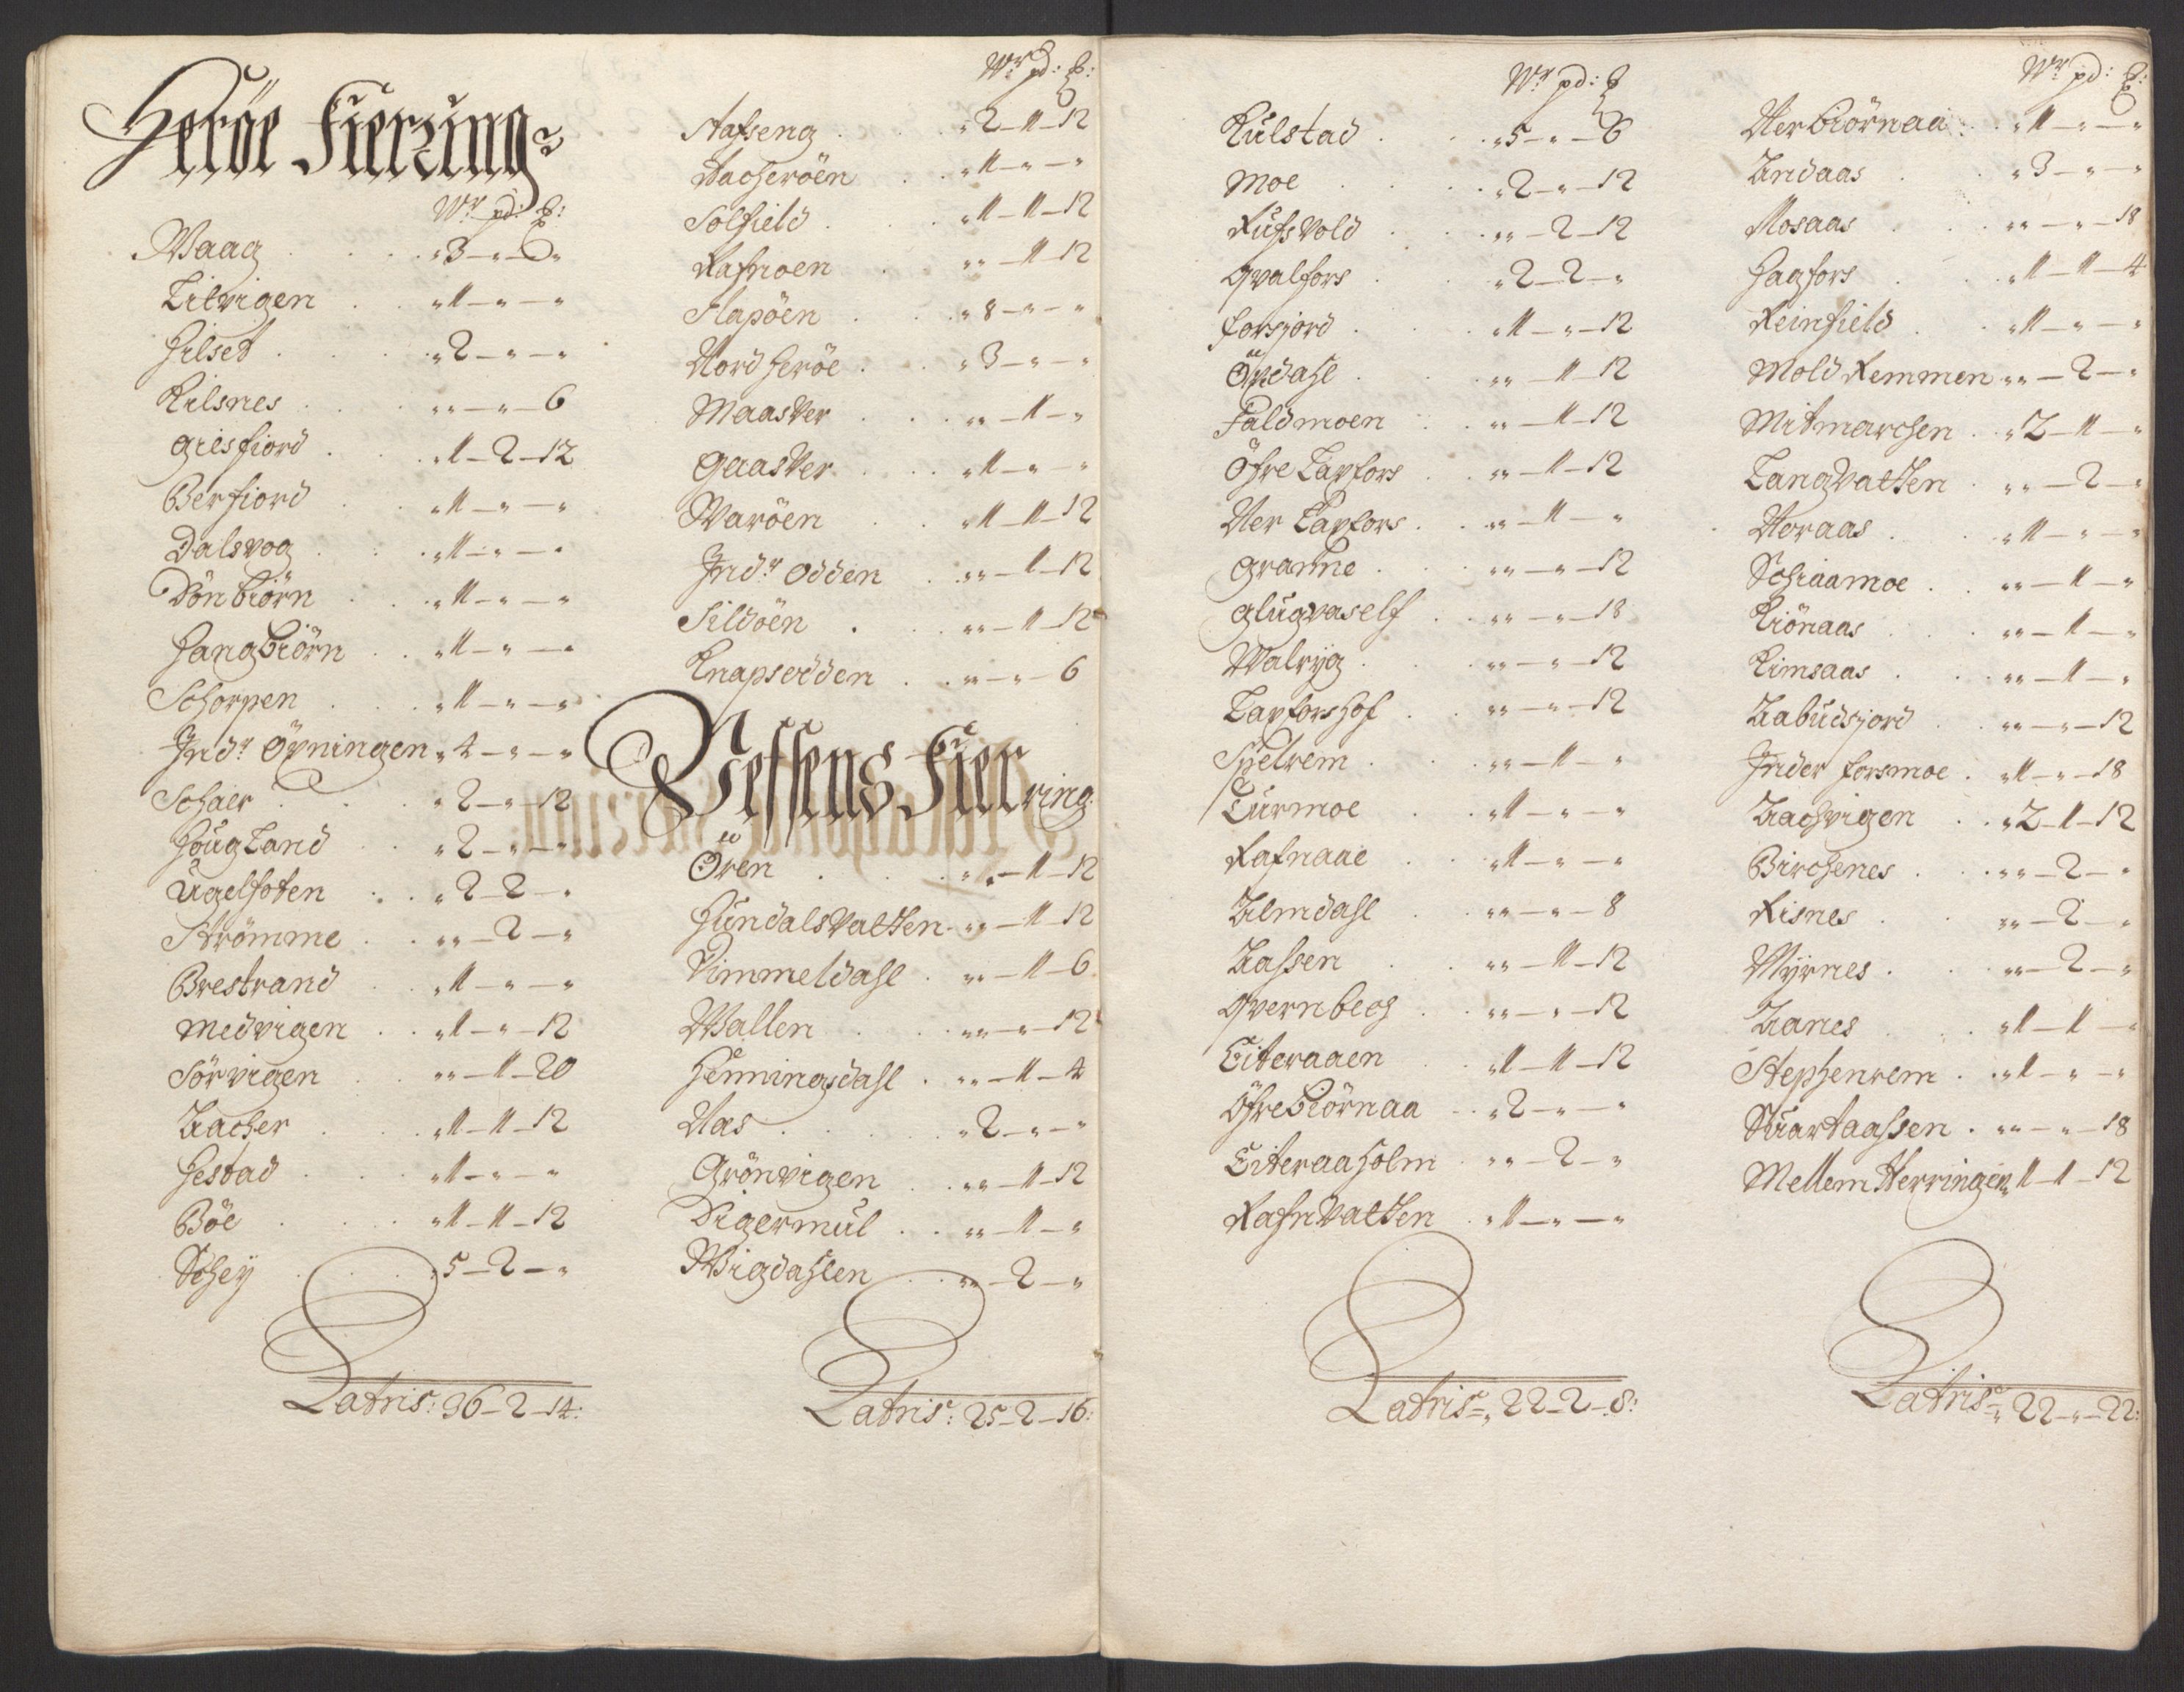 Herøe Fierring
Wr pd: ℔:
Waag . . . „3-„-„
Litvigen . . „1-„-„
Hilset . . . „2-„-„
Kilsnes . . „„-„-6
Giesfiord . . „1-2-12
Berfiord . . „1-„-„
Dalsvog . . „1-„-„
Dönbiörn . . „1-„-„
Hangbiörn . . „1-„-„
Schorpen . . „1-„-„
Indr Öyningen „4-„-„
Schaer . . „2-„-12
Hougland . . „2-„-„
Ugelfoten . . „2-2-„
Strömme . . „„-2-„
Brestrand . . „1-„-„
Medvigen . . „1-„-12
Sörvigen . . „„-1-20
Aacher . . „1-1-12
Hestad . . „1-„-„
Böe . . . „1-1-12
Schey . . . „5-2-„
Latris: 36-2-14:
Wr pd: ℔:
Stafseng . . „2-1-12
Bacheröen . . „1-„-„
Solfield . . „1-1-12
Rafnoen . . „„-1-12
Slapöen . . „8-„-„
Nordheröe . . „3-„-„
Maasver . . „„-1-„
Gaasver . . „1-„-„
Waröen . . „1-1-12
Indr Odden . . „„-1-12
Sildöen . . „„-1-12
Knapsodden . . „„-„-6
Vefsens Fierring
Ören . . „„-1-12
Hundalsvatten „„-1-12
Vimmeldahl . „„-1-6
Wallen . . „„-„-12
Henningsdahl . „„-1-4
Aas . . . „2-„-„
Grönvigen . . „„-1-12
Digermul . . „„-1-„
Wigdahlen . . „„-2-„
Latris: 25-2-16:
Wr pd: ℔
Kulstad . . „5-„-6
Moe . . . „2-„-12
Rufsvold . . „„-2-12
Qvalfors . . „2-2-„
Forsjord . . „1-„-12
Övdahl . . „„-1-12
Faldmoen . . „„-1-12
Öfre Laxfors . . „„-1-12
Ner Laxfors . . „„-1-„
Granne . . „„-„-12
Glugvaself . . „„-„-18
Walryg . . „„-„-12
Laxforshof . . „„-„-12
Spelrem . . „„-1-„
Turmoe . . „1-„-„
Rafnaae . . „1-„-„
Almdahl . . „„-„-8
Aassen . . „„-1-12
Qvernbech . . „„-„-12
Eiteraaen . . „1-1-12
Öfrebiörnaa . . „2-„-„
Eiteraaholm . „„-2-„
Rafnvatten . „1-„-„
Latris„ 22-2-8:
Wr pd: ℔:
Nerbiörnaa . . „1-„-„
Andaas . . „3-„-„
Mosaas . . „„-„-18
Hagfors . . „1-1-4
Reinfield . . „1-„-„
Mold Remmen „„-2-„
Mitmarchen . „2-1-„
Langvatten . „„-2-„
Noraas . . „1-„-„
Schiaamoe . . „„-1-„
Kiönaas . . „„-1-„
Kimsaas . . „„-1-„
Aabudsjord . „„-„-12
Inder Forsmoe . „1-„-18
Aachvigen . . „2-1-12
Birchenes . . „„-2-„
Risnes . . „„-2-„
Myrnes . . „„-2-„
Aanes . . „1-1-„
Stephenrem . „1-„-„
Svartaassen . „„-„-18
Mellem Herringen „1-1-12
Latris„ 22-„-22: